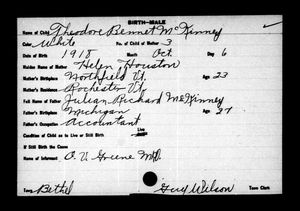 BIRTH—MALE
Name of Child Theodore Bennet McKinney
Color White No. of Child of Mother 3
Date of Birth 1918 Month Oct. Day 6
Maiden Name of Mother Helen Houston
Mother's Birthplace Northfield Vt. Age 23
Mother's Residence Rochester Vt.
Full Name of Father Julian Richard McKinney
Father's Birthplace Michigan Age 27
Father's Occupation Accountant
Condition of Child as to Live or Still Birth Live
If Still Birth the Cause
Name of Informant O. V. Greene M.D.
Town Bethel Guy Wilson Town Clerk